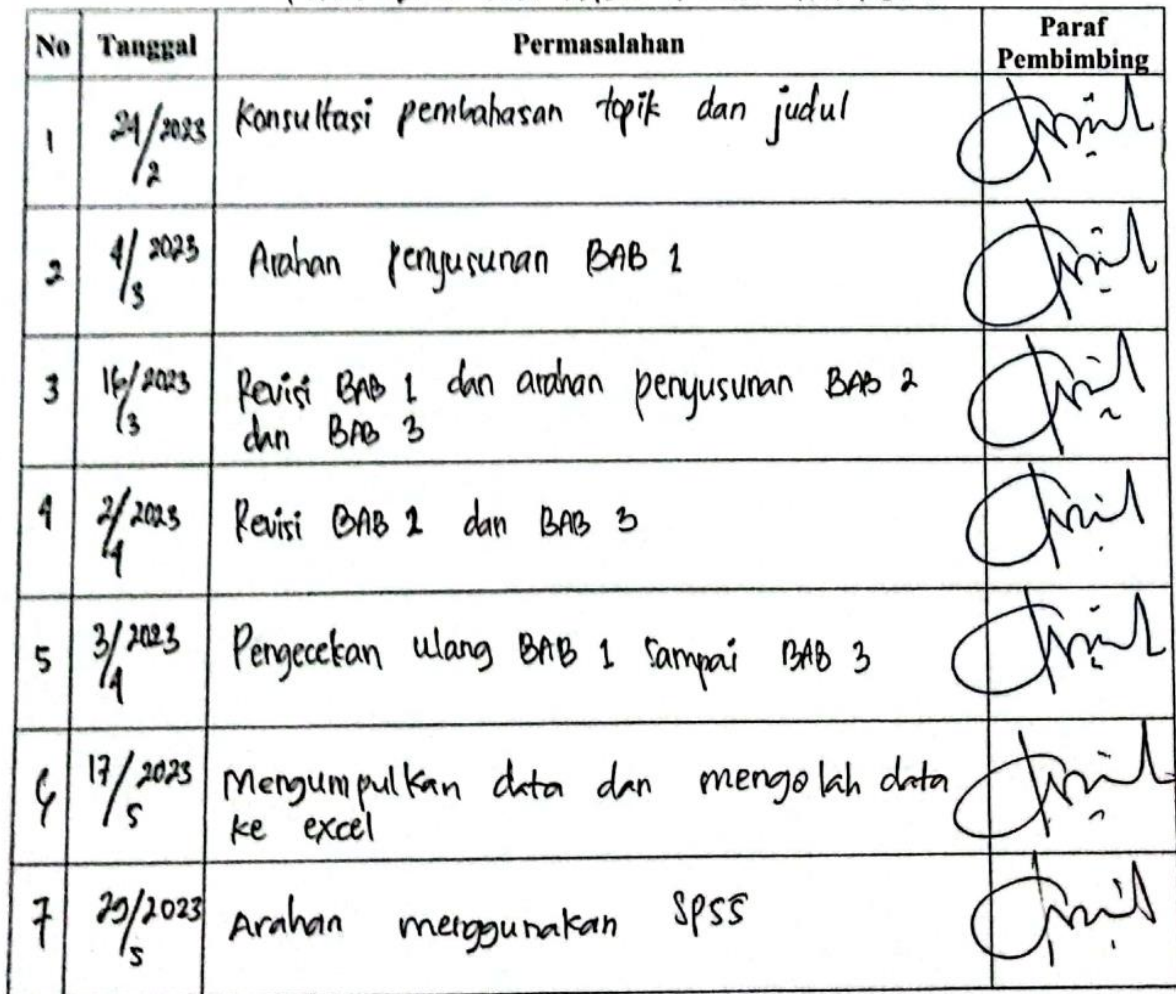 No Tanggal Permasalahan Paraf Pembimbing
1 24/2 2023 Konsultasi pembahasan topik dan judul
2 4/3 2023 Arahan penyusunan BAB 1
3 16/3 2023 Revisi BAB 1 dan arahan penyusunan BAB 2
dan BAB 3
4 2/4 2023 Revisi BAB 2 dan BAB 3
5 3/4 2023 Pengecekan ulang BAB 1 sampai BAB 3
6 17/5 2023 Mengumpulkan data dan mengolah data
ke excel
7 29/5 2023 Arahan menggunakan SPSS